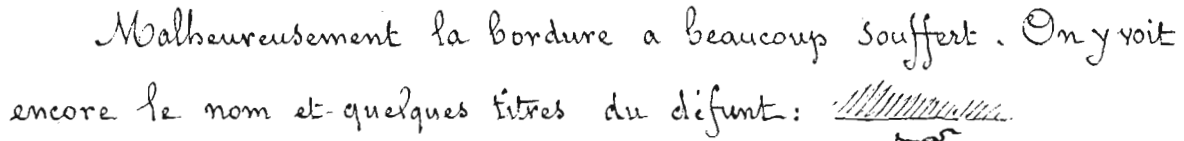 Malheureusement la bordure a beaucoup souffert. On y voit
encore le nom et quelques titres du défunt: